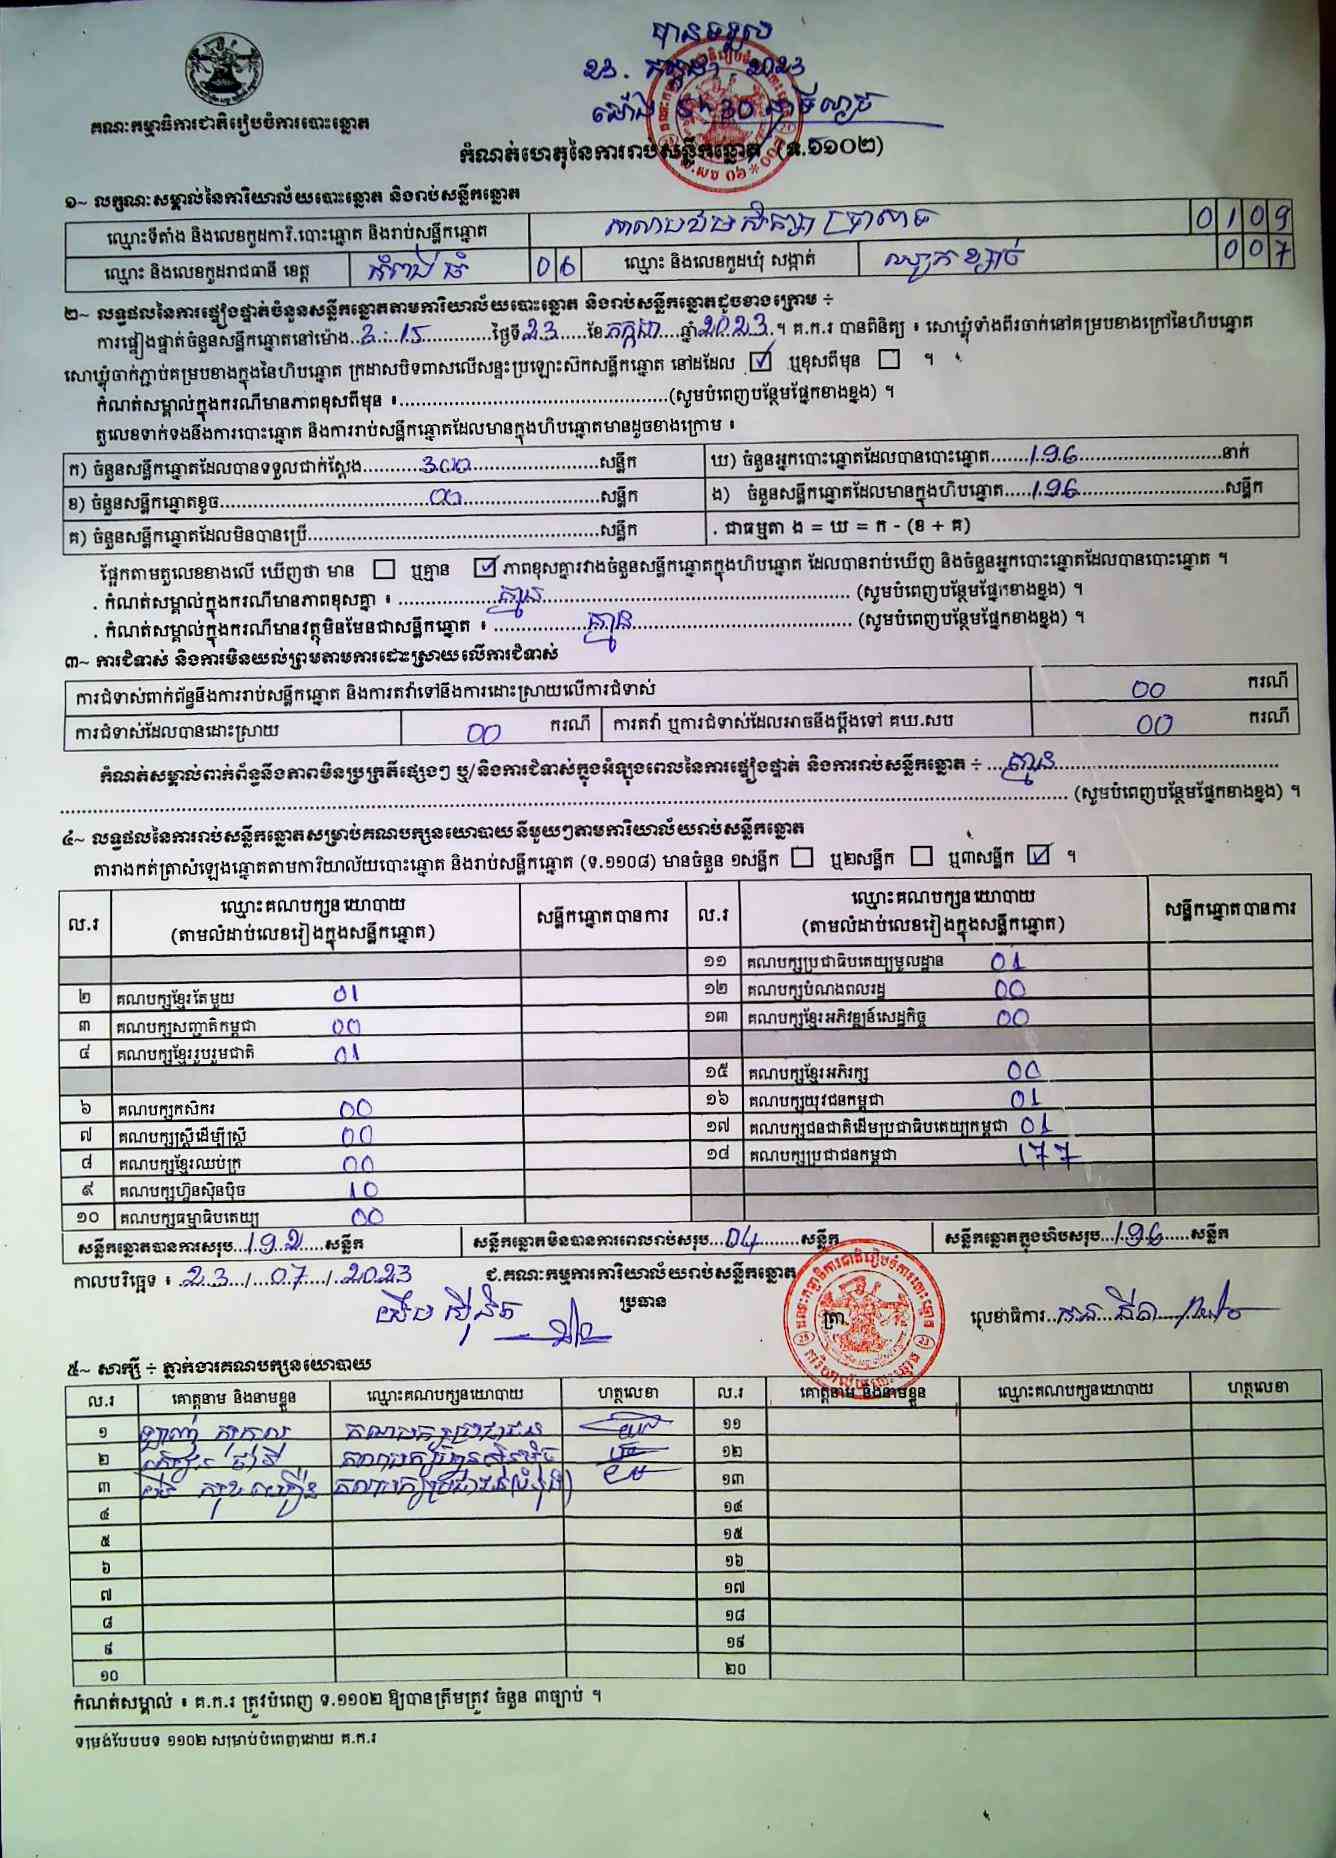 បានទទួល
23. កក្កដា 2023
ម៉ោង 5h 30
គណៈកម្មាធិការជាតិរៀបចំការបោះឆ្នោត
កំណត់ហេតុនៃការរាប់សន្លឹកឆ្នោត (ទ.១១០២)
១~ លក្ខណៈសម្គាល់នៃការិយាល័យបោះឆ្នោត និងរាប់សន្លឹកឆ្នោត
ឈ្មោះទីតាំង និងលេខកូដការិ.បោះឆ្នោត និងរាប់សន្លឹកឆ្នោត 0109
ឈ្មោះ និងលេខកូដរាជធានី ខេត្ត កំពង់ធំ 06 ឈ្មោះ និងលេខកូដឃុំ សង្កាត់ ឈូកខ្សាច់ 007
២~ លទ្ធផលនៃការផ្ទៀងផ្ទាត់ចំនួនសន្លឹកឆ្នោតតាមការិយាល័យបោះឆ្នោត និងរាប់សន្លឹកឆ្នោតដូចខាងក្រោម ÷
ការផ្ទៀងផ្ទាត់ចំនួនសន្លឹកឆ្នោតនៅម៉ោង..3:15.............ថ្ងៃទី23......ខែកក្កដា....ឆ្នាំ2023.។ គ.ក.រ បានពិនិត្យ ៖ សោឃ្លុំទាំងពីរចាក់នៅគម្របខាងក្រៅនៃហិបឆ្នោត
សោឃ្លុំចាក់ភ្ជាប់គម្របខាងក្នុងនៃហិបឆ្នោត ក្រដាសបិទពាសលើសន្ទះប្រឡោះស៊កសន្លឹកឆ្នោត នៅដដែល ☑ ឬខុសពីមុន ☐ ។
កំណត់សម្គាល់ក្នុងករណីមានភាពខុសពីមុន ៖..............................................(សូមបំពេញបន្ថែមផ្នែកខាងខ្នង) ។
តួលេខទាក់ទងនឹងការបោះឆ្នោត និងការរាប់សន្លឹកឆ្នោតដែលមានក្នុងហិបឆ្នោតមានដូចខាងក្រោម ៖
ក) ចំនួនសន្លឹកឆ្នោតដែលបានទទួលជាក់ស្តែង...........300......................សន្លឹក ឃ) ចំនួនអ្នកបោះឆ្នោតដែលបានបោះឆ្នោត.......196........................នាក់
ខ) ចំនួនសន្លឹកឆ្នោតខូច....................................00...........................សន្លឹក ង) ចំនួនសន្លឹកឆ្នោតដែលមានក្នុងហិបឆ្នោត.....196........................សន្លឹក
គ) ចំនួនសន្លឹកឆ្នោតដែលមិនបានប្រើ.................................................សន្លឹក . ជាធម្មតា ង = ឃ = ក - (ខ + គ)
ផ្អែកតាមតួលេខខាងលើ ឃើញថា មាន ☐ ឬគ្មាន ☑ ភាពខុសគ្នារវាងចំនួនសន្លឹកឆ្នោតក្នុងហិបឆ្នោត ដែលបានរាប់ឃើញ និងចំនួនអ្នកបោះឆ្នោតដែលបានបោះឆ្នោត ។
. កំណត់សម្គាល់ក្នុងករណីមានភាពខុសគ្នា ៖ .................គ្មាន..................................................... (សូមបំពេញបន្ថែមផ្នែកខាងខ្នង) ។
. កំណត់សម្គាល់ក្នុងករណីមានវត្ថុមិនមែនជាសន្លឹកឆ្នោត ៖ ................គ្មាន..................................... (សូមបំពេញបន្ថែមផ្នែកខាងខ្នង) ។
៣~ ការជំទាស់ និងការមិនយល់ព្រមតាមការដោះស្រាយលើការជំទាស់
ការជំទាស់ពាក់ព័ន្ធនឹងការរាប់សន្លឹកឆ្នោត និងការតវ៉ាទៅនឹងការដោះស្រាយលើការជំទាស់ 00 ករណី
ការជំទាស់ដែលបានដោះស្រាយ 00 ករណី ការតវ៉ា ឬការជំទាស់ដែលអាចនឹងប្តឹងទៅ គឃ.សប 00 ករណី
កំណត់សម្គាល់ពាក់ព័ន្ធនឹងភាពមិនប្រក្រតីផ្សេងៗ ឬ/និងការជំទាស់ក្នុងអំឡុងពេលនៃការផ្ទៀងផ្ទាត់ និងការរាប់សន្លឹកឆ្នោត ÷ ...គ្មាន......................................
(សូមបំពេញបន្ថែមផ្នែកខាងខ្នង) ។
៤~ លទ្ធផលនៃការរាប់សន្លឹកឆ្នោតសម្រាប់គណបក្សនយោបាយនីមួយៗតាមការិយាល័យរាប់សន្លឹកឆ្នោត
តារាងកត់ត្រាសំឡេងឆ្នោតតាមការិយាល័យបោះឆ្នោត និងរាប់សន្លឹកឆ្នោត (ទ.១១០៨) មានចំនួន ១សន្លឹក ☐ ឬ២សន្លឹក ☐ ឬ៣សន្លឹក ☑ ។
ល.រ ឈ្មោះគណបក្សនយោបាយ (តាមលំដាប់លេខរៀងក្នុងសន្លឹកឆ្នោត) សន្លឹកឆ្នោតបានការ ល.រ ឈ្មោះគណបក្សនយោបាយ (តាមលំដាប់លេខរៀងក្នុងសន្លឹកឆ្នោត) សន្លឹកឆ្នោតបានការ
១១ គណបក្សប្រជាធិបតេយ្យមូលដ្ឋាន 01
២ គណបក្សខ្មែរតែមួយ 01 ១២ គណបក្សបំណងពលរដ្ឋ 00
៣ គណបក្សសញ្ជាតិកម្ពុជា 00 ១៣ គណបក្សខ្មែរអភិវឌ្ឍន៍សេដ្ឋកិច្ច 00
៤ គណបក្សខ្មែររួបរួមជាតិ 01
១៥ គណបក្សខ្មែរអភិរក្ស 00
៦ គណបក្សកសិករ 00 ១៦ គណបក្សយុវជនកម្ពុជា 01
៧ គណបក្សស្ត្រីដើម្បីស្ត្រី 00 ១៧ គណបក្សជនជាតិដើមប្រជាធិបតេយ្យកម្ពុជា 01
៨ គណបក្សខ្មែរឈប់ក្រ 00 ១៨ គណបក្សប្រជាជនកម្ពុជា 177
៩ គណបក្សហ៊្វុនស៊ិនប៉ិច 10
១០ គណបក្សធម្មាធិបតេយ្យ 00
សន្លឹកឆ្នោតបានការសរុប...192.....សន្លឹក សន្លឹកឆ្នោតមិនបានការពេលរាប់សរុប...04........សន្លឹក សន្លឹកឆ្នោតក្នុងហិបសរុប...196......សន្លឹក
កាលបរិច្ឆេទ ៖ .23../..07../..2023 ជ.គណៈកម្មការការិយាល័យរាប់សន្លឹកឆ្នោត
ប្រធាន ត្រា. លេខាធិការ
៥~ សាក្សី ÷ ភ្នាក់ងារគណបក្សនយោបាយ
ល.រ គោត្តនាម និងនាមខ្លួន ឈ្មោះគណបក្សនយោបាយ ហត្ថលេខា ល.រ គោត្តនាម និងនាមខ្លួន ឈ្មោះគណបក្សនយោបាយ ហត្ថលេខា
១ គណបក្សប្រជាជន ១១
២ គណបក្សហ៊្វុនស៊ិនប៉ិច ១២
៣ គណបក្សប្រជាជន(បំរុង) ១៣
៤ ១៤
៥ ១៥
៦ ១៦
៧ ១៧
៨ ១៨
៩ ១៩
១០ ២០
កំណត់សម្គាល់ ៖ គ.ក.រ ត្រូវបំពេញ ទ.១១០២ ឱ្យបានត្រឹមត្រូវ ចំនួន ៣ច្បាប់ ។
ទម្រង់បែបបទ ១១០២ សម្រាប់បំពេញដោយ គ.ក.រ